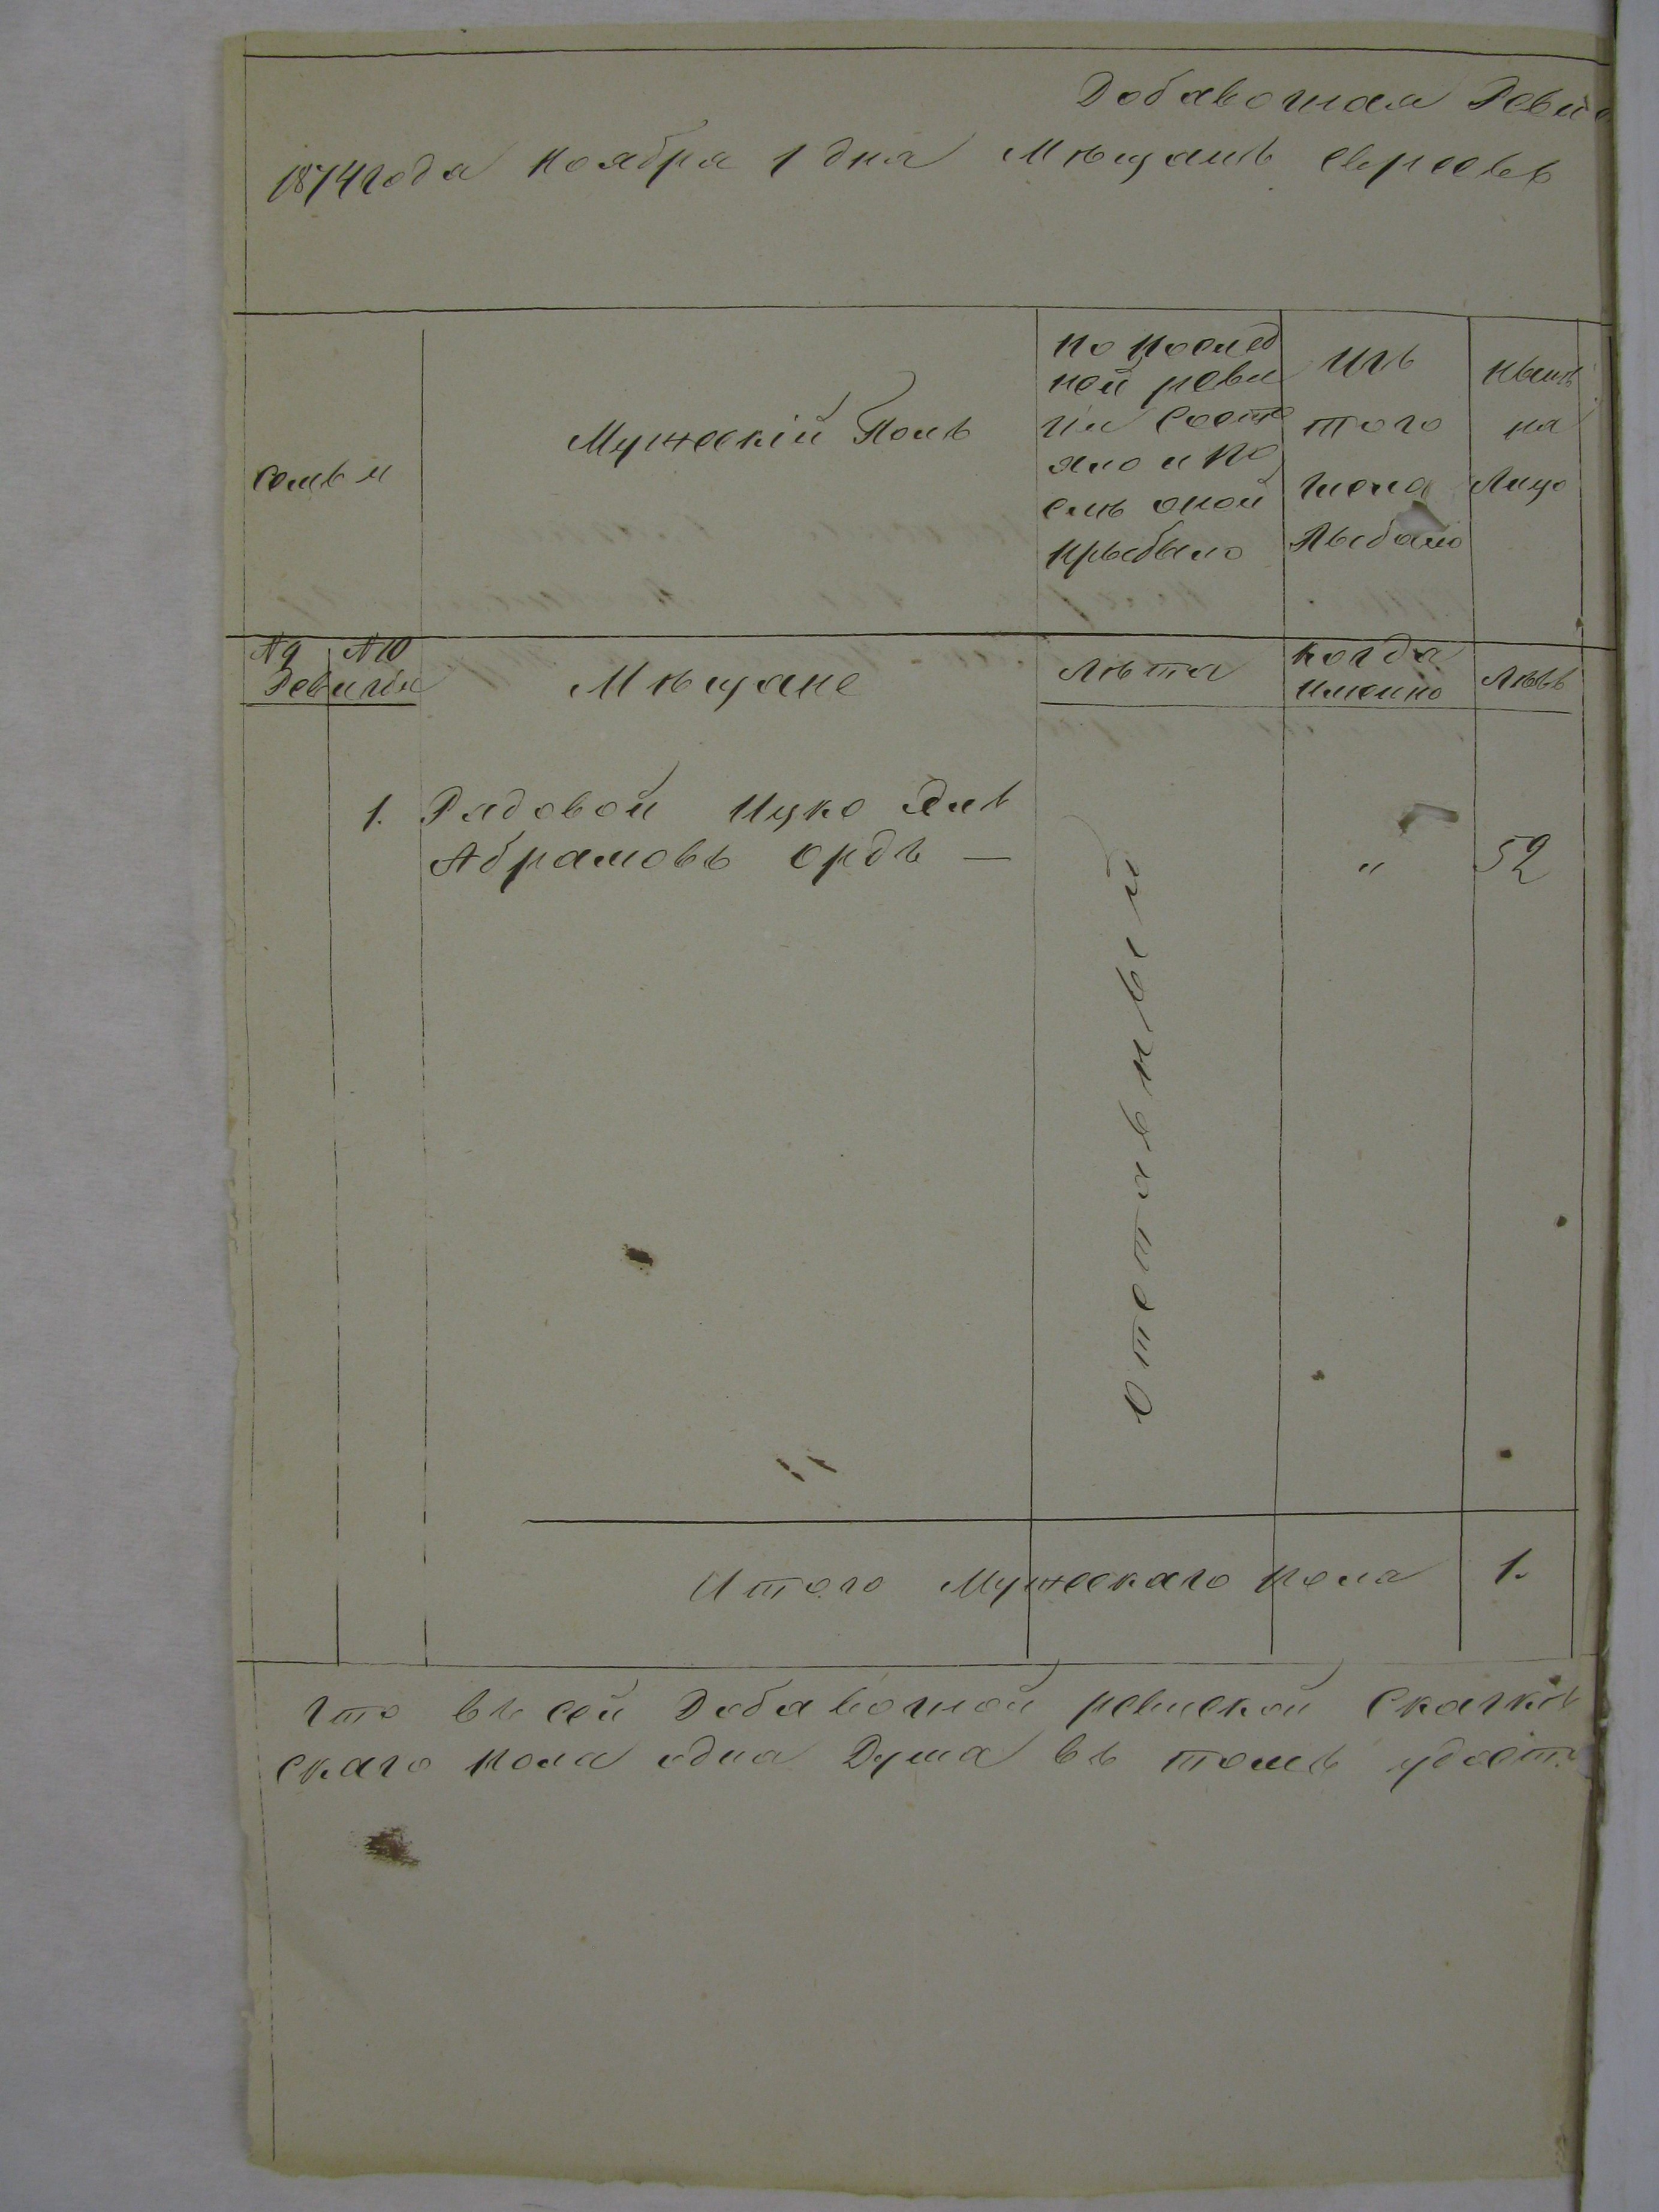 Добавочная Реви
1874 года Ноября 1 дня Мѣщанъ евреевъ
семьи
Мужескій Полъ
По послед
ней реви
зіи состо
яло и по
слѣ оной
прыбыло
Изъ
того
числа
Выбыло
Нынѣ
на
Лицо
№9 №10
Ревизіи
Мѣщане
Лѣта
Когда
именно
Лѣтъ
1. Рядовой Ицко
Абрамовъ Ордъ —
Отставный
" 52
Итого Мужескаго пола 1.
Что въ сей Добавочной ревиской Сказкѣ
скаго пола одна Душа въ томъ удост